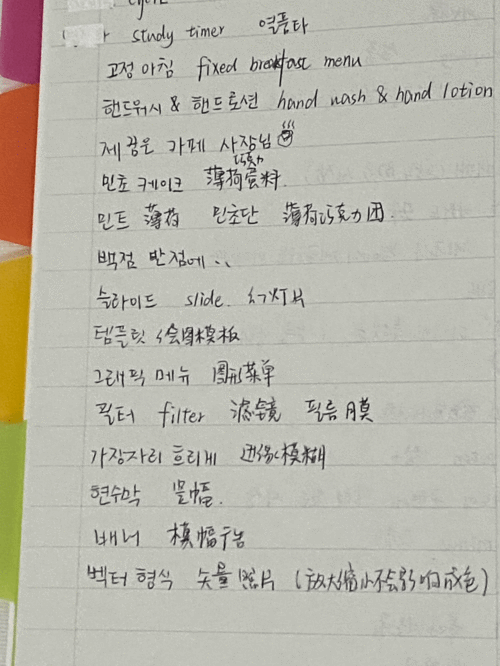 cycle
study timer 열품타
고정 아침 fixed breakfast menu
핸드워시 & 핸드로션 hand wash & hand lotion
제 꿈은 카페 사장님
巧克力
민초 케이크 薄荷蛋料.
민트 薄荷 민초단 薄荷巧克力团.
백점 만점에..
슬라이드 slide. 幻灯片
템플릿 绘图模板
그래픽 메뉴 图形菜单
필터 filter 滤镜 필름 膜
가장자리 흐리게 边缘模糊
현수막 竖幅.
배너 横幅广告
벡터 형식 矢量照片 (放大缩小不会影响成色)